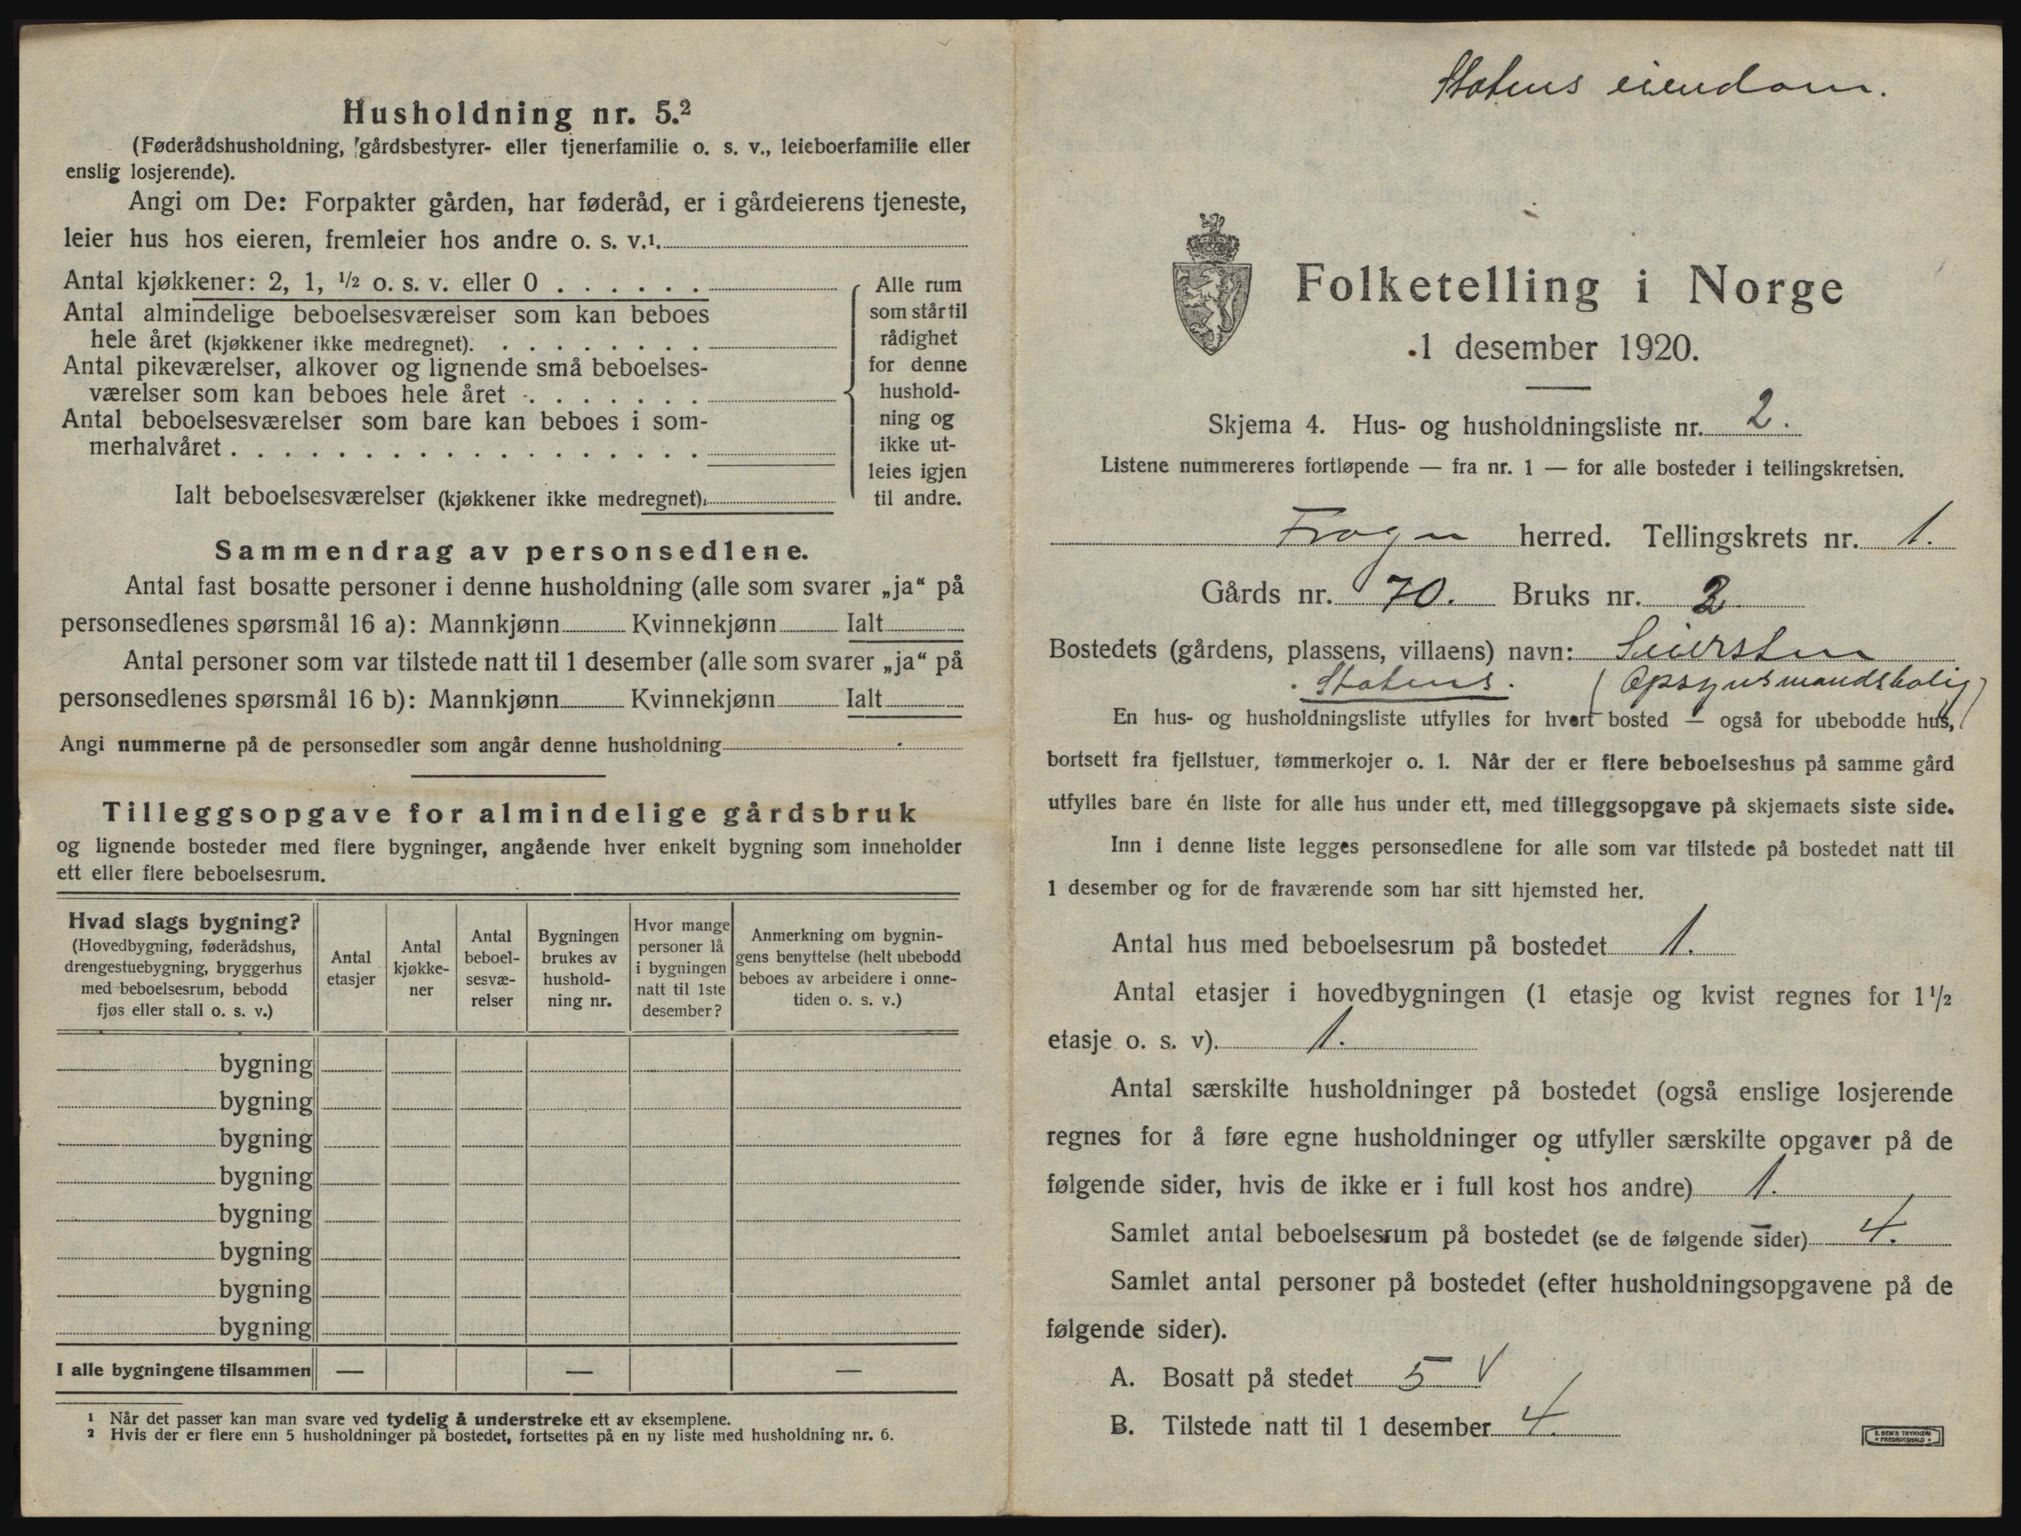 Husholdning nr. 5.²
(Føderådshusholdning, gårdsbestyrer- eller tjenerfamilie o. s. v., leieboerfamilie eller
enslig losjerende).
Angi om De: Forpakter gården, har føderåd, er i gårdeierens tjeneste,
leier hus hos eieren, fremleier hos andre o. s. v.¹.
Antal kjøkkener: 2, 1, ½ o. s. v. eller 0 . . . . . .
Antal almindelige beboelsesværelser som kan beboes
hele året (kjøkkener ikke medregnet). . . . . . . . .
Antal pikeværelser, alkover og lignende små beboelses-
værelser som kan beboes hele året . . . . . . .
Antal beboelsesværelser som bare kan beboes i som-
merhalvåret . . . . . . . . . . . . . . . . . .
Ialt beboelsesværelser (kjøkkener ikke medregnet).
Alle rum
som står til
rådighet
for denne
hushold-
ning og
ikke ut-
leies igjen
til andre.
Sammendrag av personsedlene.
Antal fast bosatte personer i denne husholdning (alle som svarer „ja“ på
personsedlenes spørsmål 16 a): Mannkjønn Kvinnekjønn Ialt
Antal personer som var tilstede natt til 1 desember (alle som svarer „ja“ på
personsedlenes spørsmål 16 b): Mannkjønn Kvinnekjønn Ialt
Angi nummerne på de personsedler som angår denne husholdning
Tilleggsopgave for almindelige gårdsbruk
og lignende bosteder med flere bygninger, angående hver enkelt bygning som inneholder
ett eller flere beboelsesrum.
Hvad slags bygning?
(Hovedbygning, føderådshus,
drengestuebygning, bryggerhus
med beboelsesrum, bebodd
fjøs eller stall o. s. v.)
Antal
etasjer
Antal
kjøkke-
ner
Antal
beboel-
sesvæ-
relser
Bygningen
brukes av
hushold-
ning nr.
Hvor mange
personer lå
i bygningen
natt til 1ste
desember?
Anmerkning om bygnin-
gens benyttelse (helt ubebodd
beboes av arbeidere i onne-
tiden o. s. v.)
bygning
bygning
bygning
bygning
bygning
bygning
bygning
bygning
I alle bygningene tilsammen — — —
¹ Når det passer kan man svare ved tydelig å understreke ett av eksemplene.
² Hvis der er flere enn 5 husholdninger på bostedet, fortsettes på en ny liste med husholdning nr. 6.
Statens eiendom.
Folketelling i Norge
1 desember 1920.
Skjema 4. Hus- og husholdningsliste nr. 2.
Listene nummereres fortløpende — fra nr. 1 — for alle bosteder i tellingskretsen.
Frogn herred. Tellingskrets nr. 1.
Gårds nr. 70. Bruks nr. 2
Bostedets (gårdens, plassens, villaens) navn: Seiersten
Statens. (Opsynsmandsbolig)
En hus- og husholdningsliste utfylles for hvert bosted — også for ubebodde hus,
bortsett fra fjellstuer, tømmerkojer o. l. Når der er flere beboelseshus på samme gård
utfylles bare én liste for alle hus under ett, med tilleggsopgave på skjemaets siste side.
Inn i denne liste legges personsedlene for alle som var tilstede på bostedet natt til
1 desember og for de fraværende som har sitt hjemsted her.
Antal hus med beboelsesrum på bostedet 1.
Antal etasjer i hovedbygningen (1 etasje og kvist regnes for 1½
etasje o. s. v). 1.
Antal særskilte husholdninger på bostedet (også enslige losjerende
regnes for å føre egne husholdninger og utfyller særskilte opgaver på de
følgende sider, hvis de ikke er i full kost hos andre) 1.
Samlet antal beboelsesrum på bostedet (se de følgende sider) 4.
Samlet antal personer på bostedet (efter husholdningsopgavene på de
følgende sider).
A. Bosatt på stedet 5 V
B. Tilstede natt til 1 desember 4.
E. SEM'S TRYKKERI
FREDRIKSHALD